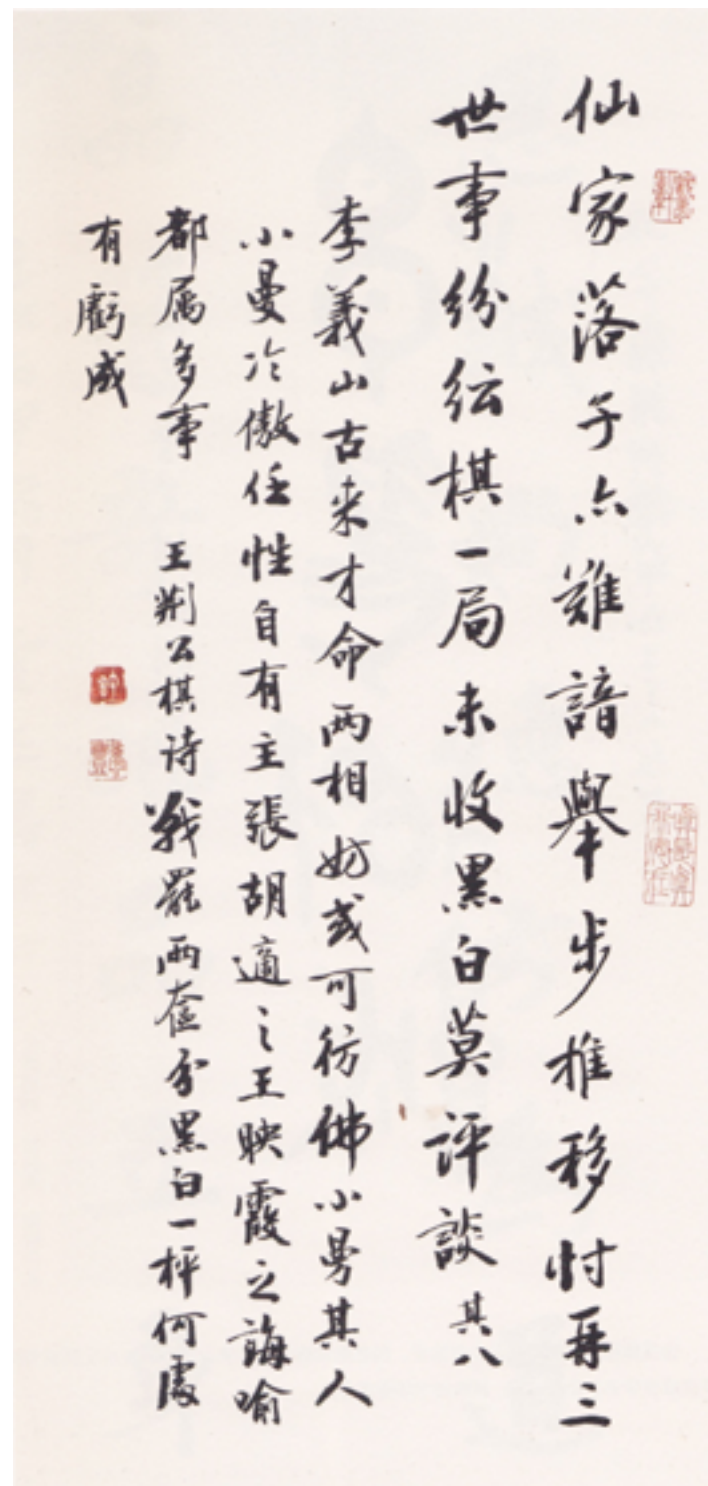 仙家落子亦難諳舉步推移忖再三
世事紛纭棋一局未收黑白莫評談其八
李義山古来才命两相妨或可彷佛小曼其人
小曼冷傲任性自有主張胡適之王映霞之誨喻
都属多事 王荆公棋诗戰罷兩奩分黑白一枰何處
有虧成